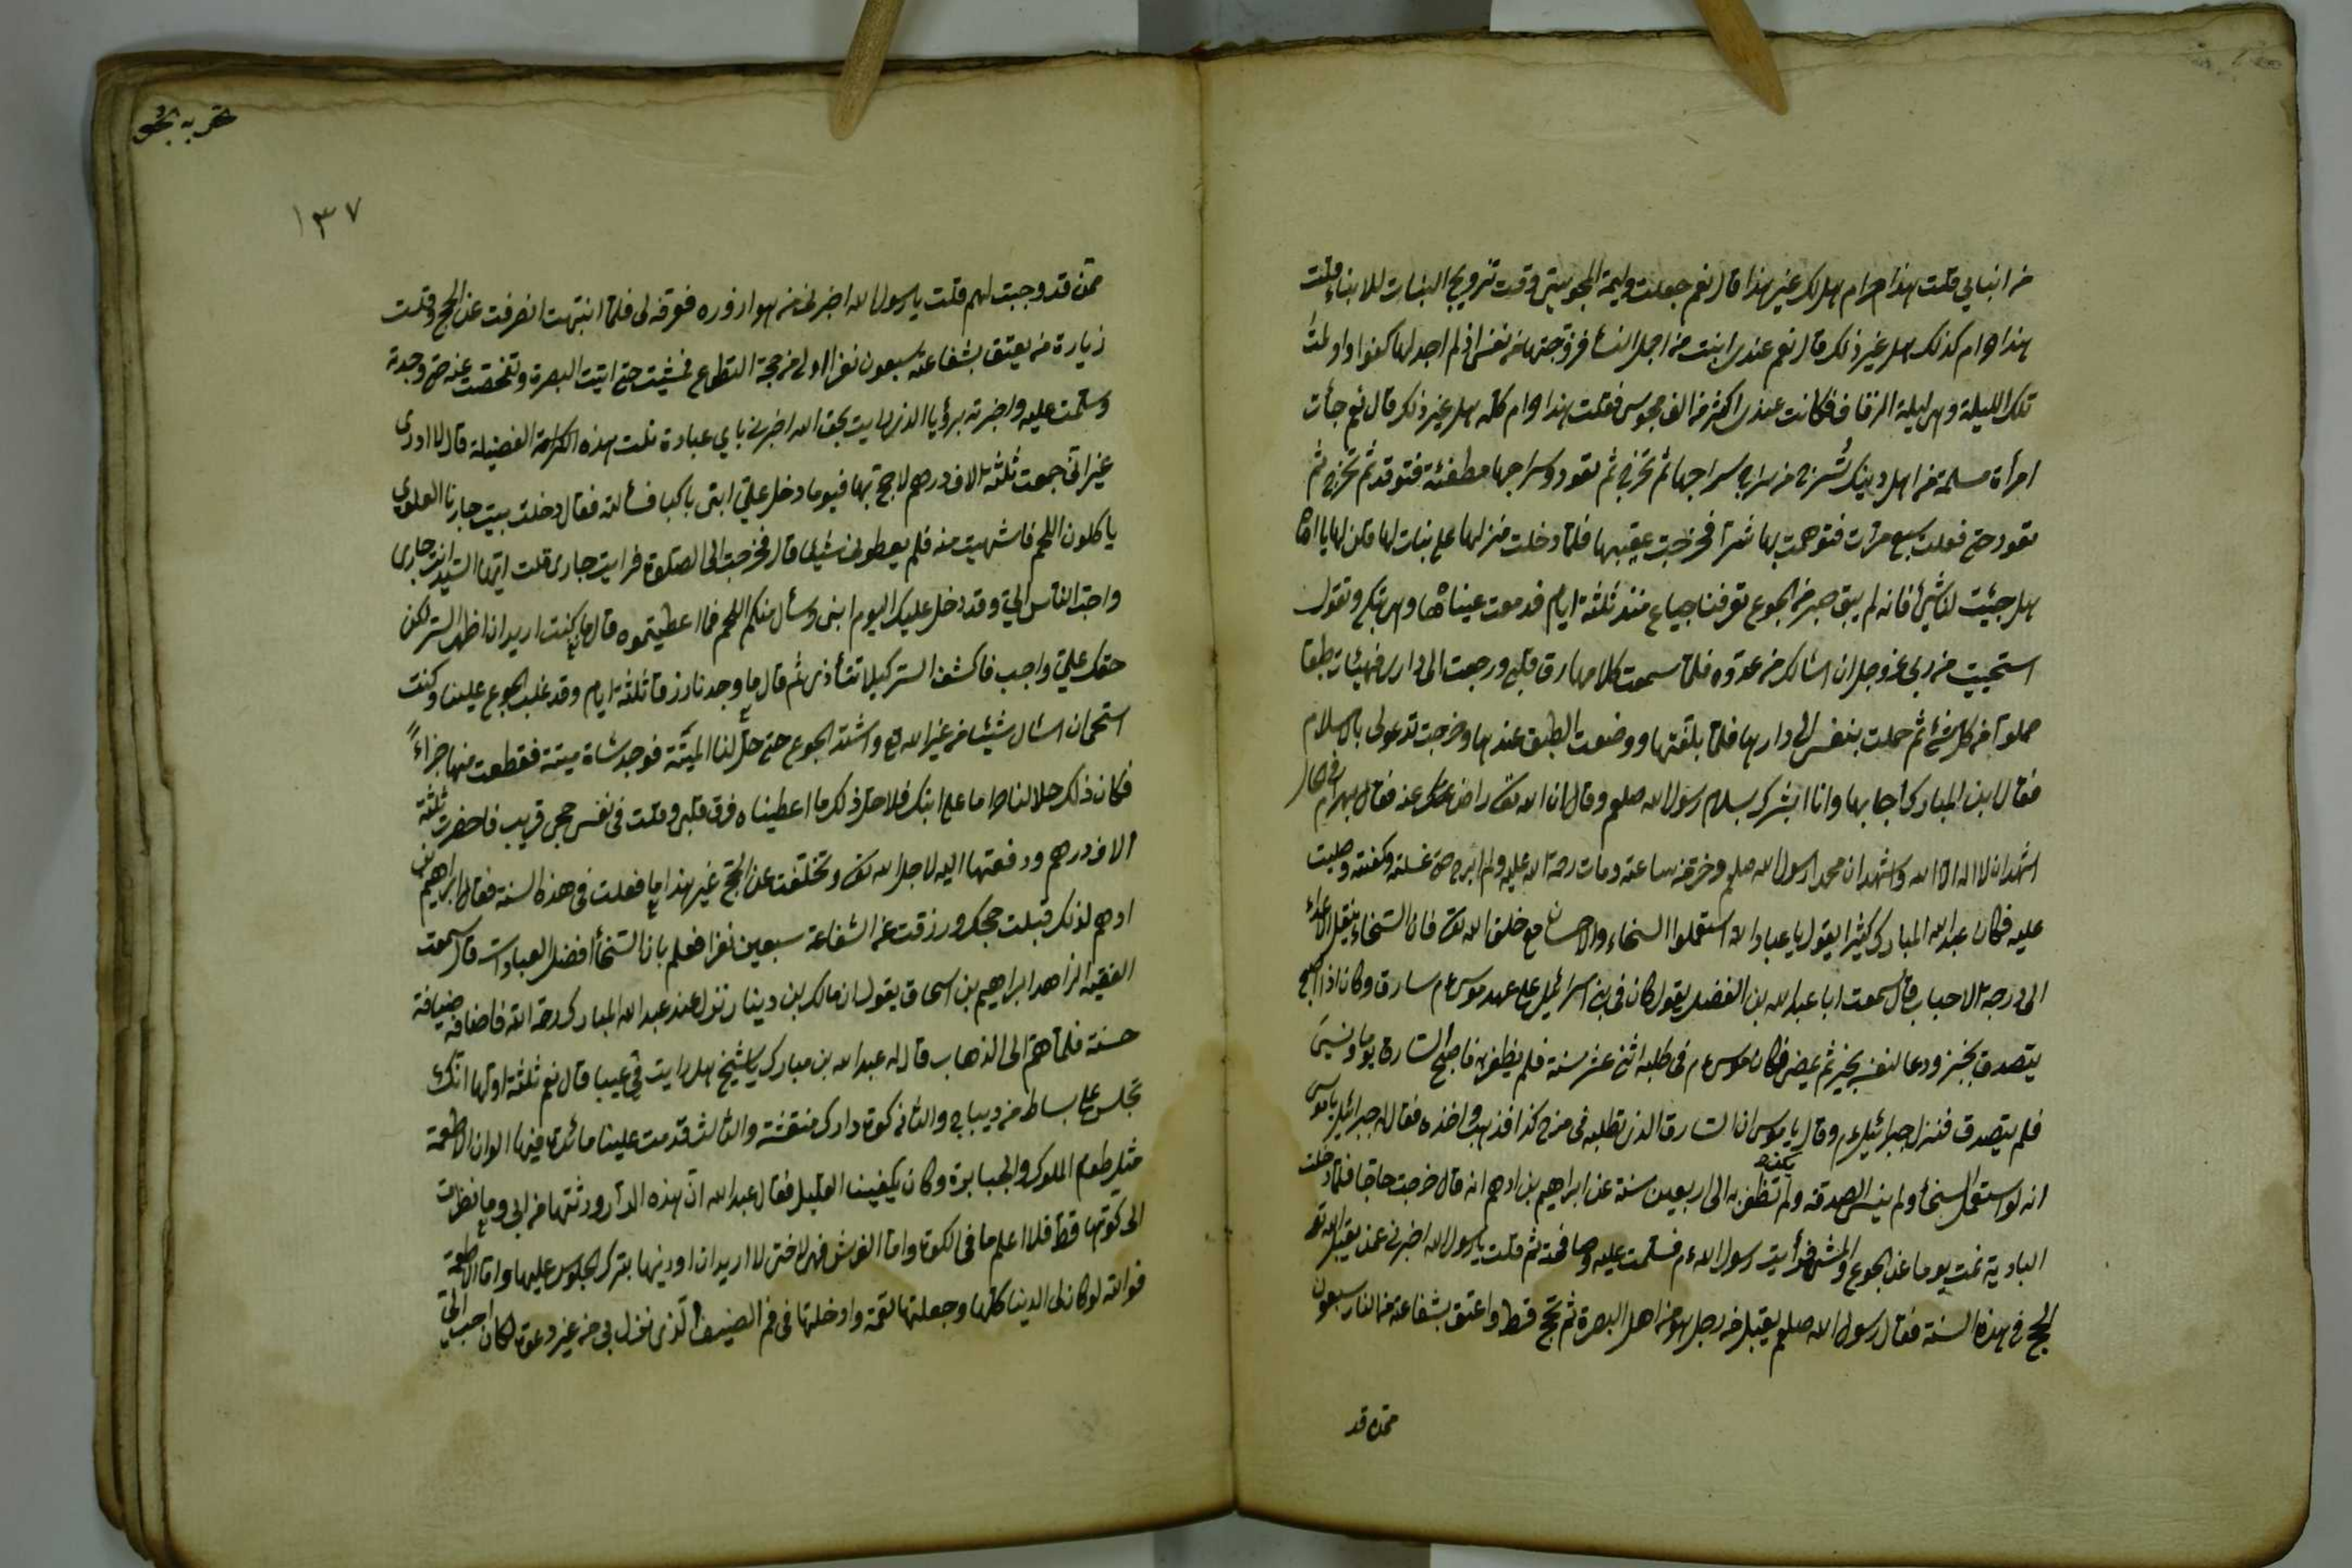 من ابنائي قلت هذا حرام هل لك غير هذا قال نعم جعلت وليمة المجوسيتي وقت تزويج البنات للابناء قلت
هذا حرام كذلك هل غير ذلك قال نعم عندي ابنت من اجمل النسأ فزوجتها من نفسي اذ لم اجد لها كفوا واولمت
تلك الليلة وهي ليلة الزفاف فكانت عندي اكثر من الف مجوسي فقلت هذا حرام كله هل غير ذلك قال نعم جأت
امرأة مسلمة من اهل دينك تسرج من سراجي سراجها ثم تخرج ثم تعود وسراجها مطفئة فتوقد ثم تخرج ثم
تعود حتى فعلت سبع مرات فتوهمت بها شرا فخرجت عقيبها فلما دخلت منزلها على بنات لها قلن لها يا اماه
هل جئت لنا شئ فانه لم يبق صبر من الجوع تعرفنا جياع منذ ثلثة ايام فدمعت عيناها وهي تبكي وتقول
استحييت من ربي عز وجل ان اسالك من عدوه فلما سمعت كلامها رق قلبي ورجعت الى داري فهيئات طبقا
مملوا من كل شئ ثم حملت بنفسي الى دارها فلما بلغتها ووضعت الطبق عندها وخرجت تدعو لي بالاسلام
فقال ابن المبارك اجابها وانا ابشرك بسلام رسول الله صلعم وقال ان الله تعالى راض عنك عنه فقال بهرام في الحال
اشهد ان لا اله الا الله واشهد ان محمد ارسول الله صلعم وخر من ساعته ومات رحمة الله عليه ولم ابرح حتى غسلته وكفنته وصليت
عليه فكان عبد الله المبارك كثيرا يقول يا عباد الله استعملوا السخاء والاحسان مع خلق الله تعالى فان السخاء ينقل الاعداء
الى درجة الاحباب قال سمعت ابا عبد الله بن الفضل يقول كان في بني اسرائيل على عهد موسى عم سارق وكان اذا اصبح
يتصدق بخبز ودعا لنفسه بخير ثم يمضي فكان موسى عم في طلبه اثنى عشر سنة فلم يظفر به فاصبح السارق يوما ونسي
فلم يتصدق فنزل جبرائيل عم وقال يا موسى ان السارق الذي تطلبه في موضع كذا فذهب واخذه فقال له جبرائيل يا موسى
انه لو استعمل السخأ ولم ينس الصدقة ولم تظفر به الى اربعين سنة عن ابراهيم بن ادهم انه قال خرجت حاجا فلما دخلت
البادية نمت يوما عن الجوع والمشي فرأيت رسول الله عم فسلمت عليه وصافحته ثم قلت يا رسول الله اخبرني عمن يقبل الله تعالى
الحج في هذه السنة فقال رسول الله صلعم يقبل من رجل هو من اهل البصرة ثم تحج قط واعتق بشفاعته من النار سبعون
ممن قد
١٣٧
ممن قد وجبت لهم قلت يا رسول الله اخبرني من هو ازوره فعرفه لي فلما انتبهت انصرفت عن الحج وقلت
زيارة من يعتق بشفاعته سبعون نفرا اولى من حجة التطوع فمشيت حتى اتيت البصرة وتفحصت عنه حتى وجدته
وسلمت عليه واخبرته برؤيا الذي رايت بحق الله اخبرني باي عبادة نلت هذه الكرامة الفضيلة قال لا ادري
غير اني جمعت ثلثة الاف درهم لاحج بها فيوما دخل علي ابني باكيا فسألته فقال دخلت بيت جارنا العلوي
ياكلون اللحم فاشتهيت منه فلم يعطوني شيئا قال فخرجت الى الصلوة فرايت جاري قلت ايها السيد انت جاري
واحب الناس الي وقد دخل عليك اليوم ابني وسأل منكم اللحم فما اعطيتموه قال ما كنت اريد ان اظهر السر لكن
حقك علي واجب فاكشف السر كيلا تتأذي ثم قال ما وجدنا رزقا ثلثة ايام وقد غلب الجوع علينا وكنت
استحي ان اسال شيئا من غير الله تع واشتد الجوع حتى حل لنا الميتة فوجد شاة ميتة فقطعت منها جزاءً
فكان ذلك حلالنا حراما على ابنك فلاجل ذلك ما اعطيناه فرق قلبي وقلت في نفسي حجي قريب فاحضرت ثلثة
الاف درهم ودفعتها اليه لاجل الله تعالى وتخلفت عن الحج غير هذا ما فعلت في هذه السنة فقال ابراهيم بن
ادهم لذلك قبلت حجك ورزقت عن الشفاعة سبعين نفرا فعلم بان السخأ افضل العبادات قال سمعت
الفقيه الزاهد ابراهيم بن اسحاق يقول ان مالك بن دينار نزل عند عبد الله المبارك رحمة الله فاضافه ضيافة
حسنة فلما هم الى الذهاب قال له عبد الله بن مبارك يا شيخ هل رايت في عيبا قال نعم ثلثة اولها انك
تجلس على بساط من ديباج والثاني كوة دارك منقشة والثالث قدمت علينا مائدة فيها الوان الاطعمة
مثل طعام الملوك والجبابرة وكان يكفينا القليل فقال عبد الله ان هذه الدار ورثتها من ابي وما نظرت
الى كوتها قط فلا اعلم ما في الكوة واما الفرش فهي لاختي لا اريد ان اوذيها بترك الجلوس عليها واما الاطعمة
فوالله لو كان لي الدنيا كلها وجعلتها لقمة وادخلتها في فم الضيف الذي نزل بي من غير دعوة لكان احب الي